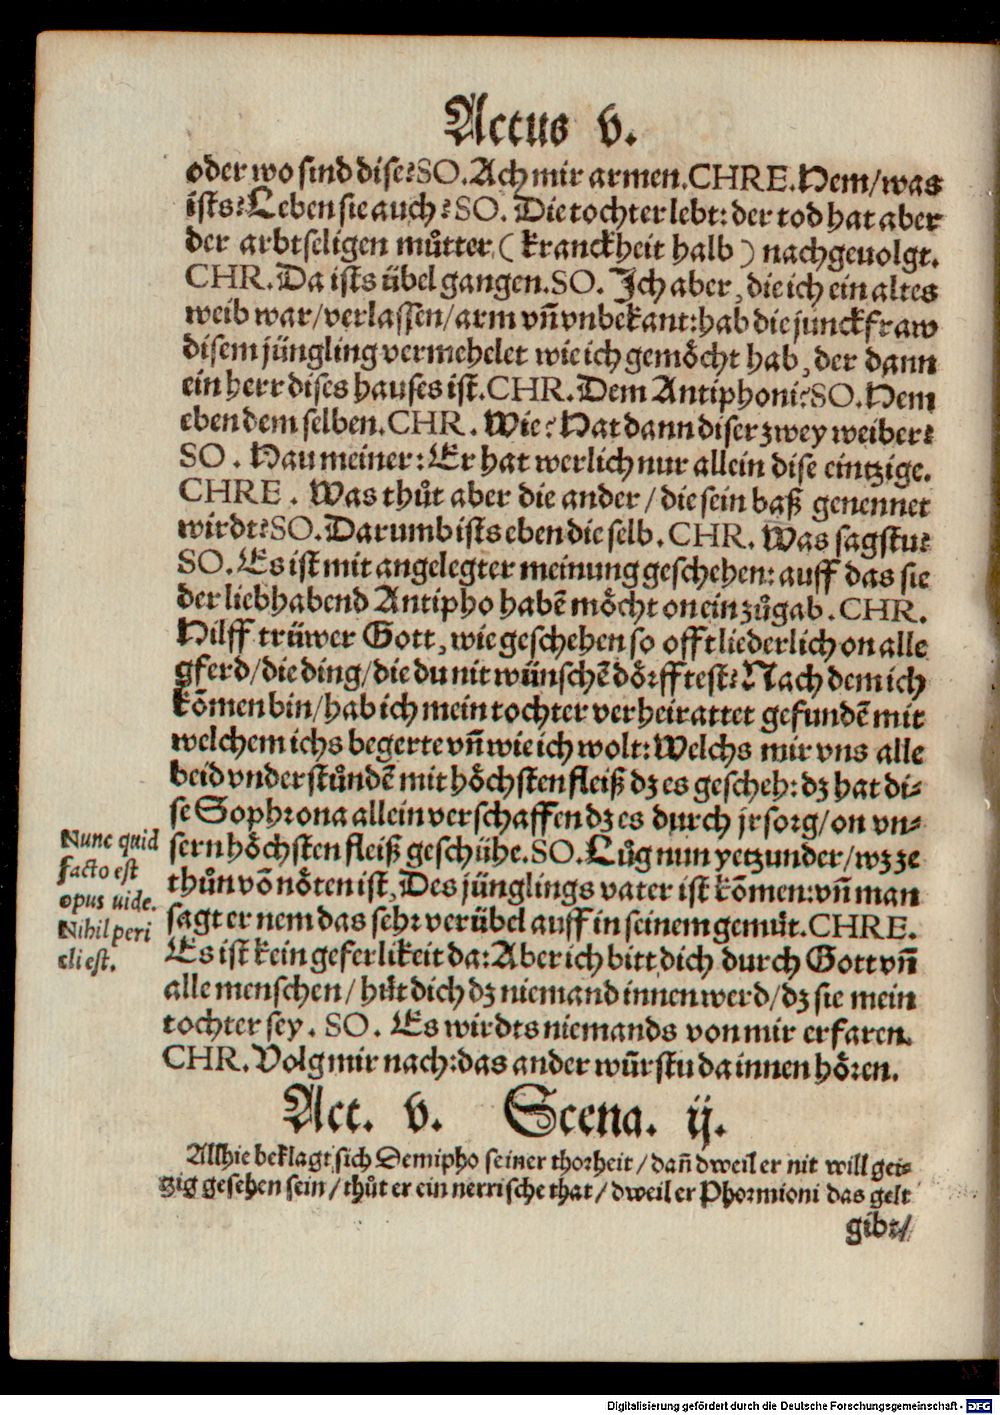 Actus v.
oder wo sind dise? SO. Ach mir armen. CHRE. Hem/was
ists? Leben sie auch? SO. Die tochter lebt: der tod hat aber
der arbtseligen můtter, (kranckheit halb) nachgeuolgt.
CHR. Da ists übel gangen. SO. Jch aber, die ich ein altes
weib war/verlassen/arm vñ vnbekant: hab die junckfraw
disem jüngling vermehelet wie ich gemöcht hab, der dann
ein herr dises hauses ist. CHR. Dem Antiphoni? SO. Hem
eben dem selben. CHR. Wie? Hat dann diser zwey weiber?
SO. Hau meiner: Er hat werlich nur allein dise eintzige.
CHRE. Was thůt aber die ander/die sein baß genennet
wirdt? SO. Darumb ists eben die selb. CHR. Was sagstu?
SO. Es ist mit angelegter meinung geschehen: auff das sie
der liebhabend Antipho habẽ möcht on ein zůgab. CHR.
Hilff trüwer Gott, wie geschehen so offt liederlich on alle
gferd/die ding/die du nit wünschẽ dörfftest? Nach dem ich
kõmen bin/hab ich mein tochter verheirattet gefundẽ mit
welchem ichs begerte vñ wie ich wolt: Welchs mir vns alle
beid vnderstůndẽ mit höchsten fleiß dz es gescheh: dz hat di⸗
se Sophrona allein verschaffen dz es durch jr sorg/on vn⸗
sern höchsten fleiß geschühe. SO. Lůg nun yetzunder/wz ze
thůn võ nöten ist, Des jünglings vater ist kõmen: vñ man
sagt er nem das sehr verübel auff in seinem gemüt. CHRE.
Es ist kein geferlikeit da: Aber ich bitt dich durch Gott vñ
alle menschen/hüt dich dz niemand innen werd/dz sie mein
tochter sey. SO. Es wirdts niemands von mir erfaren.
CHR. Volg mir nach: das ander würstu da innen hören.
Nunc quid
facto est
opus uide.
Nihil peri
cli est.
Act. v. Scena. ij.
Allhie beklagt sich Demipho seiner thorheit/dañ dweil er nit will gei⸗
zig gesehen sein/thůt er ein nerrische that/dweil er Phormioni das gelt
gibt/
Digitalisierung gefördert durch die Deutsche Forschungsgemeinschaft - DFG